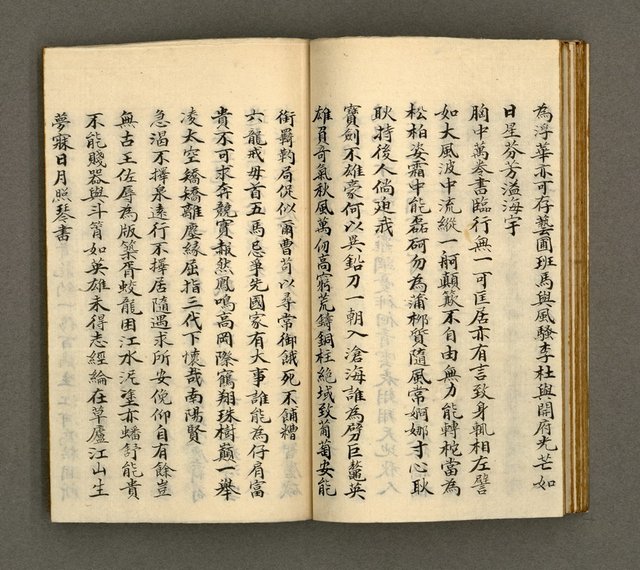 為浮華亦可存藝圃班馬與風騷李杜與開府光芒如
日星芬芳溢海宇
胸中萬卷書臨行無一可匡居亦有言致身輒相左譬
如大風波中流縱一舸顛簸不自由無力能轉柁當為
松柏姿霜中能磊砢勿為蒲柳質隨風常婀娜寸心耿
耿持後人倘迍我
寶劍不雄豪何以異鉛刀一朝入滄海誰為劈巨鰲英
雄負奇氣秋風萬仞高窮荒鑄銅柱絕域致葡萄安能
銜羈靮局促似爾曹苟以尋常御餓死不餔糟
六龍戒毋首五馬忌爭先國家有大事誰能為仔肩富
貴不可求奔競實報然鳳鳴高岡際鶴翔珠樹巔一舉
凌太空矯矯離塵緣屈指三代下懷哉南陽賢
急渴不擇泉遠行不擇居隨遇求所安俛仰自有餘豈
無古王佐辱為版築胥蛟龍困江水泥塗亦蟠舒能貴
不能賤器與斗筲如英雄未得志經綸在草廬江山生
夢寐日月照琴書